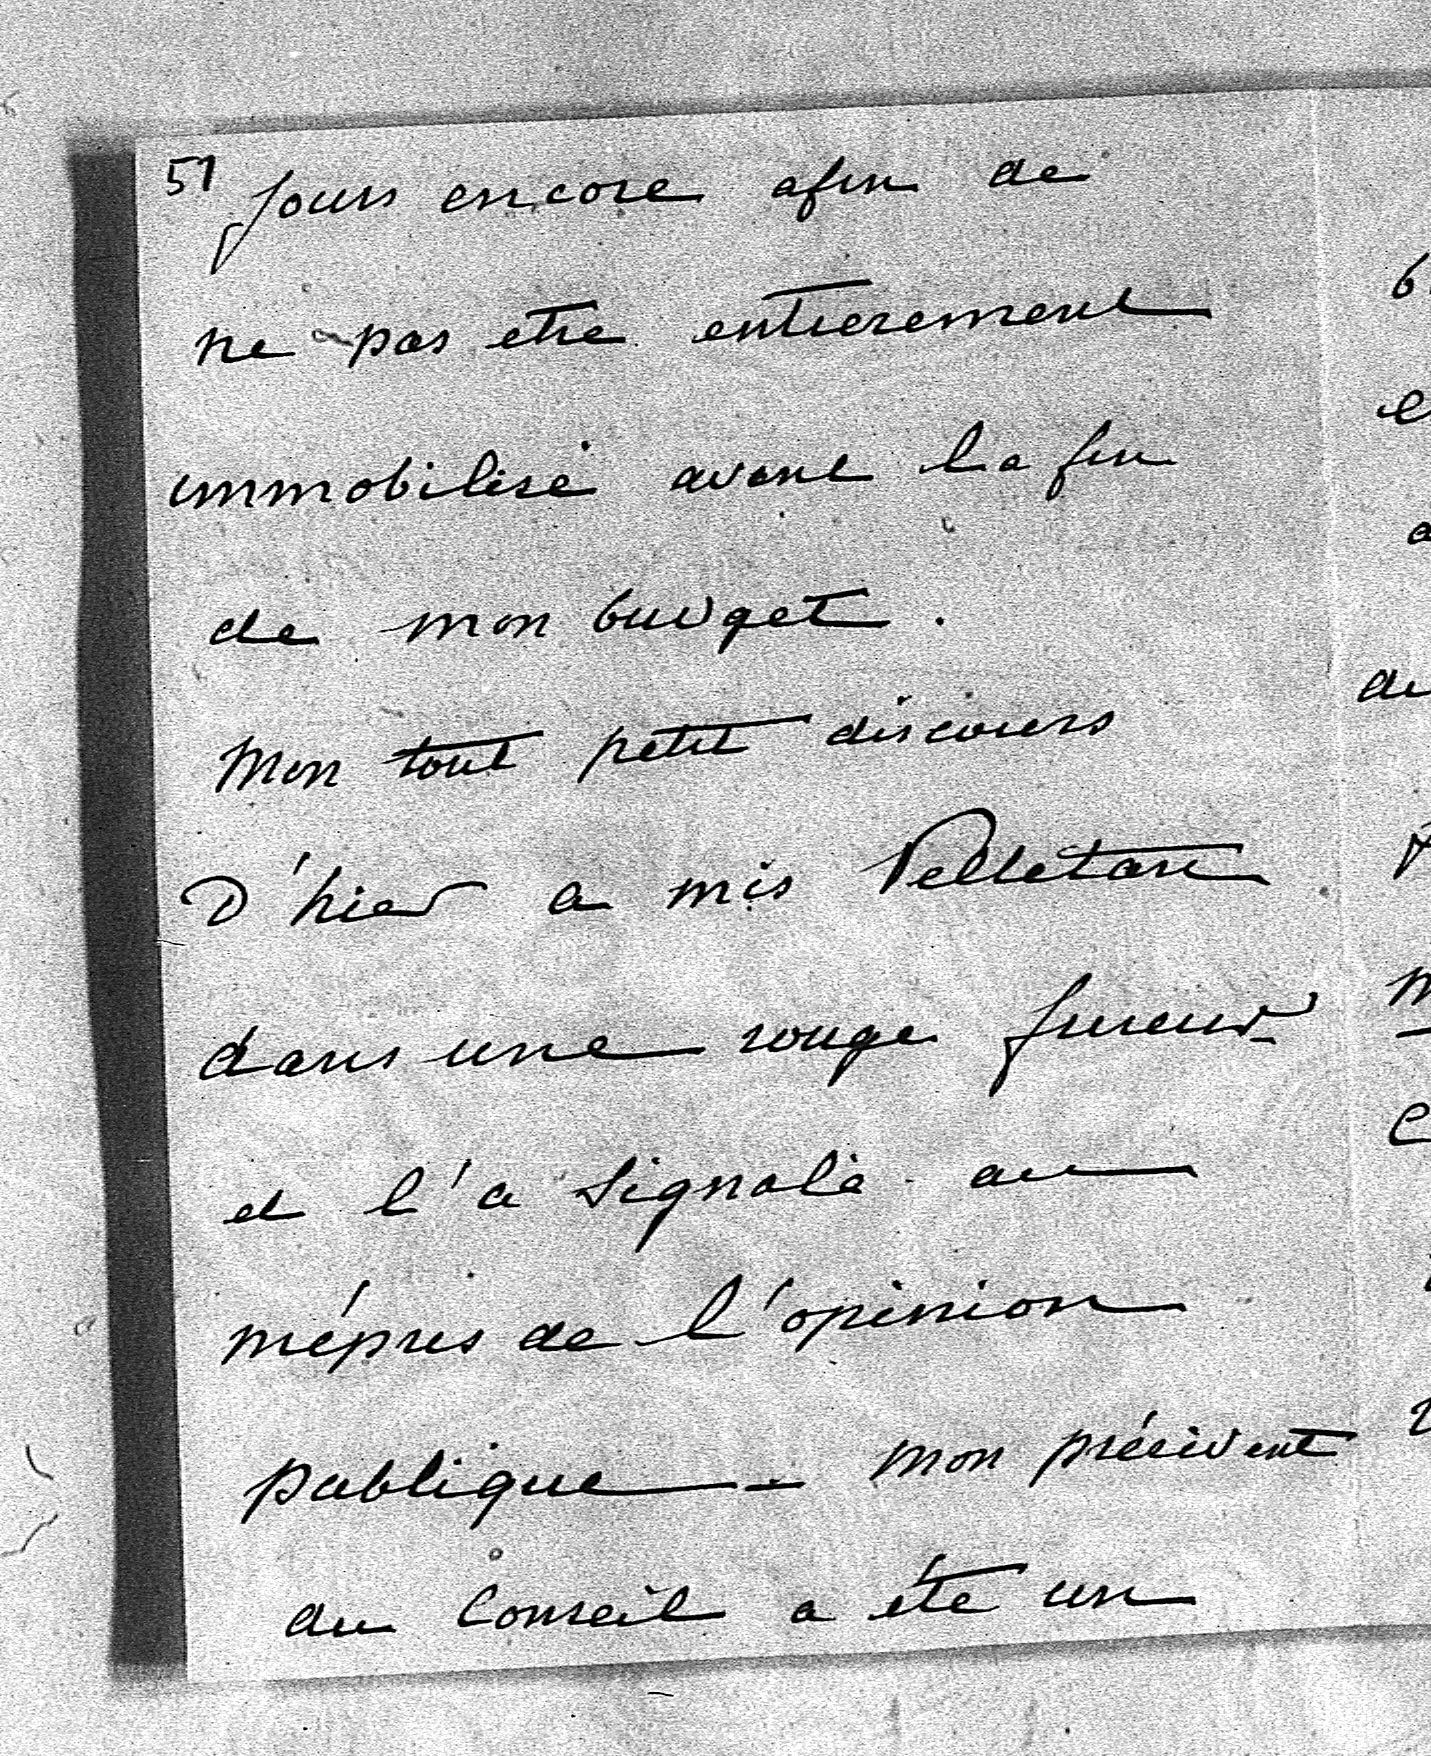 51 jours encore afin de
ne pas etre entierement
immobilisé avant la fin
de mon budget.
Mon tout petit discours
D'hier a mis Pelletan
dans une rouge fureur_
et l'a signalé au
mépris de l'opinion
publique _ mon président
du Conseil a été un